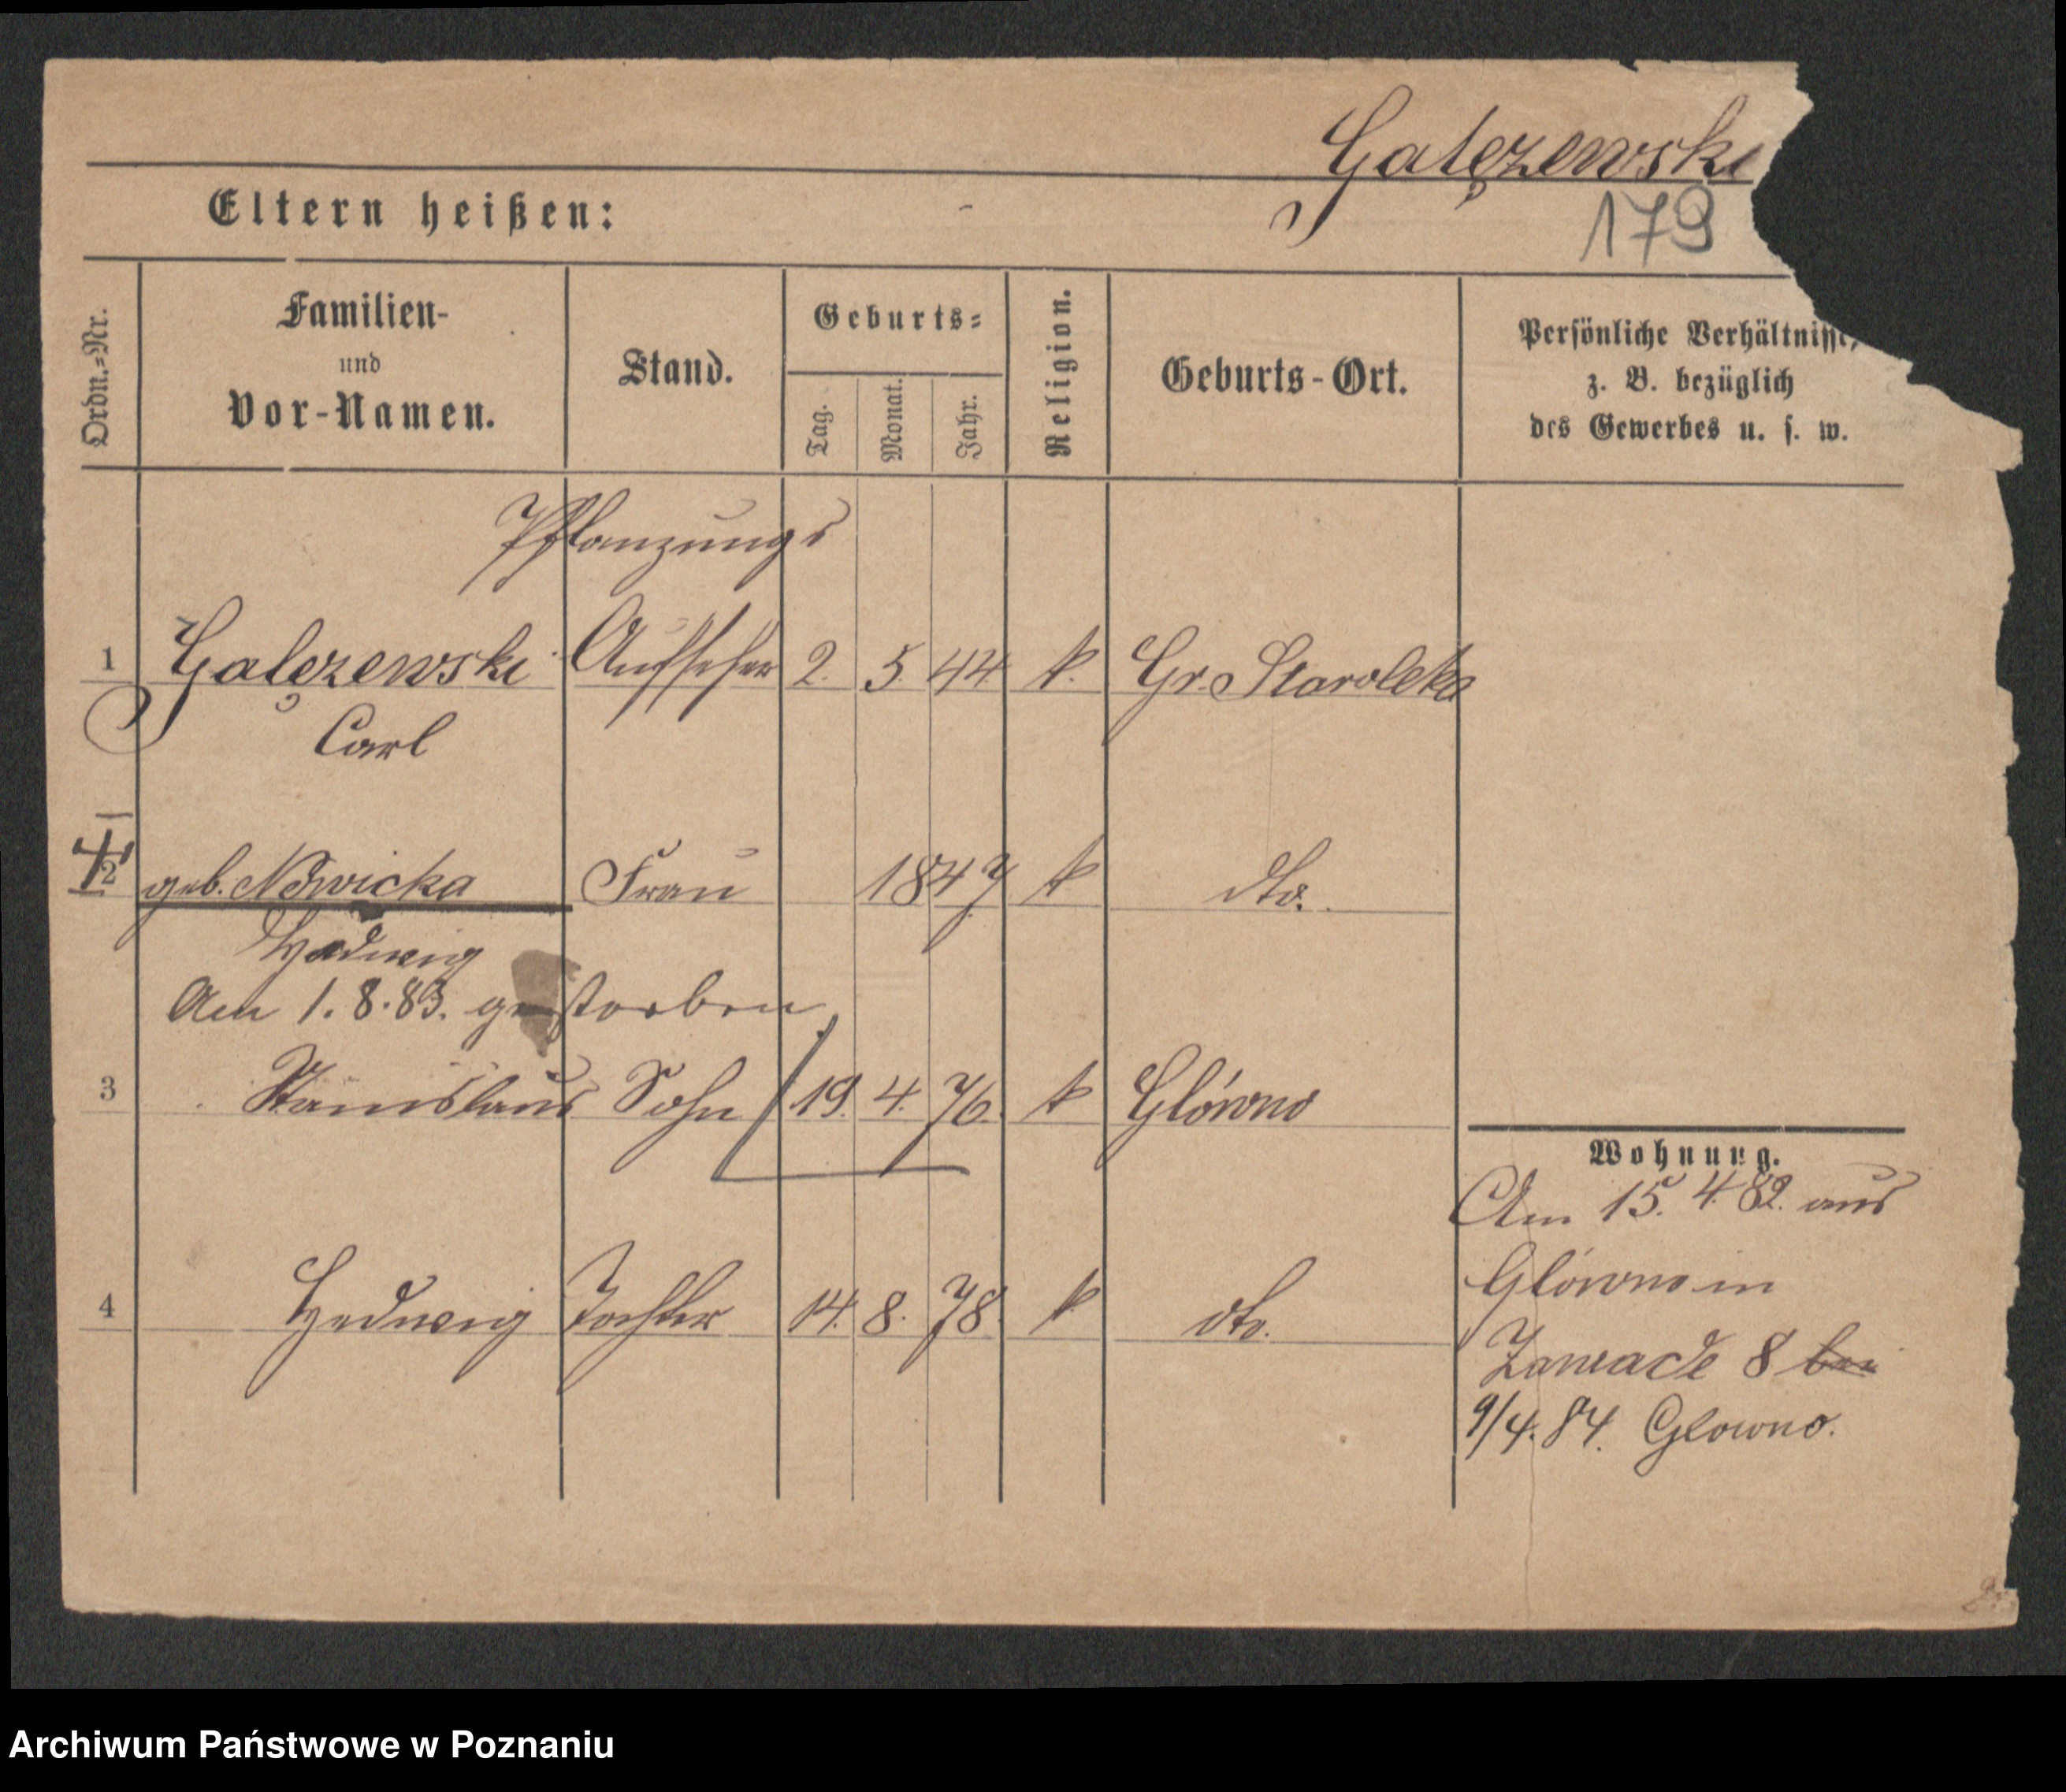 Galęzewski
Eltern heißen:
179
Ordn.-Nr.
Familien-
und
Vor-Namen.
Stand.
Geburts-
Tag.
Monat.
Jahr.
Religion.
Geburts-Ort.
Persönliche Verhältnisse,
z. B. bezüglich
des Gewerbes u. s. w.
Pflanzungs
1 Galęzewski Aufseher 2. 5. 44. k. Gr. Staroleka
Carl
2 geb. Nowicka Frau 1847 k dto.
Hedwig
Am 1.8.83. gestorben
3 Stanislaus Sohn 19. 4. 76. k Glówno
4 Hedwig Tochter 14. 8. 78. k dto.
Wohnung.
Am 15. 4. 82. aus
Glówno in
Zawade 8 bei
9/4. 84. Glowno.
Archiwum Państwowe w Poznaniu